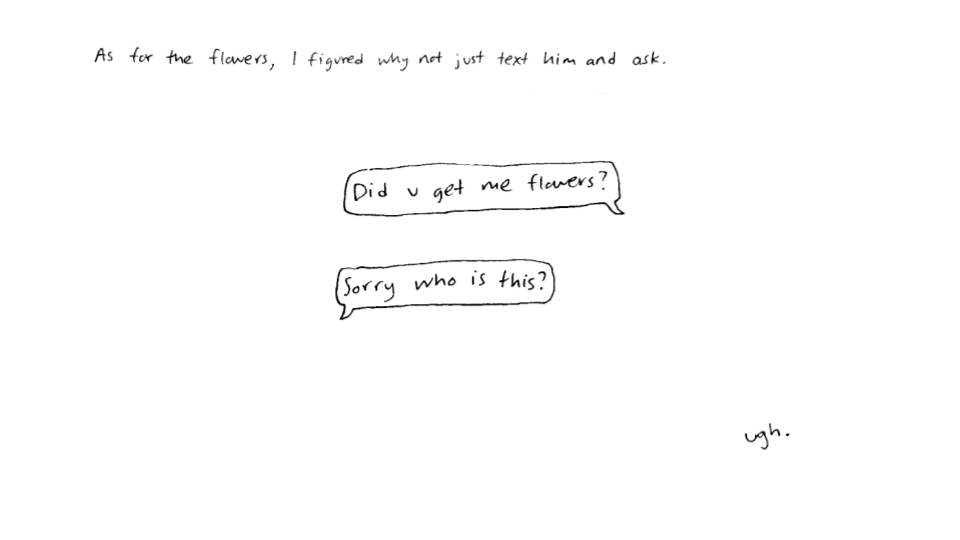 As for the flowers, I figured why not just text him and ask.
Did u get me flowers?
Sorry who is this?
ugh.